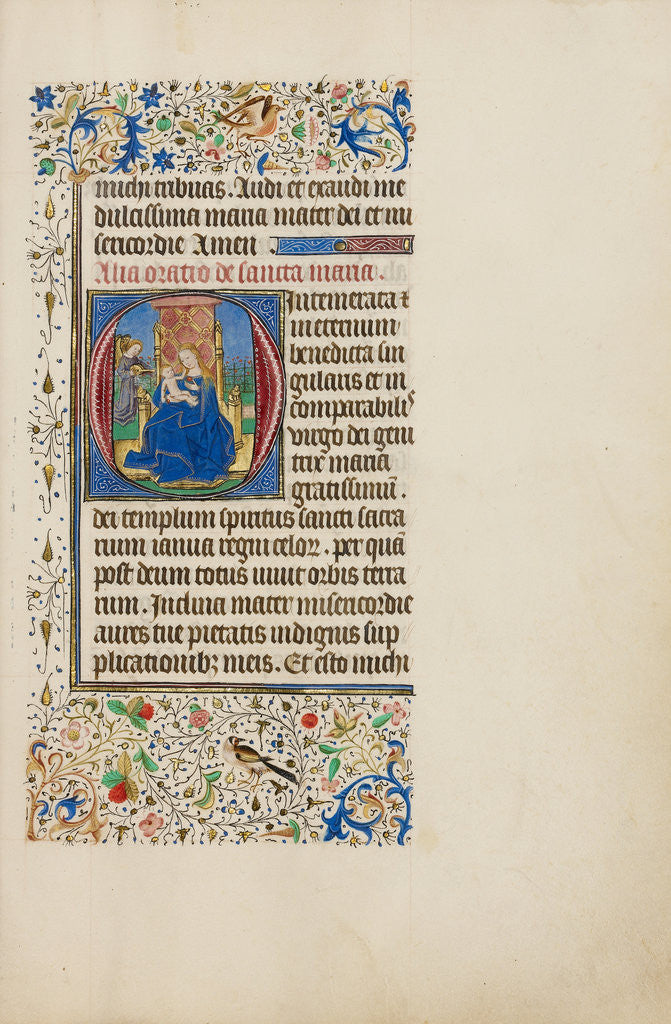 michi tribuas. Audi et exaudi me
dulcissima maria mater dei et mi
sericordie Amen.
Alia oratio de sancta maria.
O intemerata ⁊
in eternum
benedicta sin
gularis et in
comparabilis
virgo dei geni
trix maria
gratissimū.
dei templum spiritus sancti sacra
rium ianua regni celoꝝ. per quā
post deum totus viuit orbis terra
rum. Inclina mater misericordie
aures tue pietatis indignis sup
plicationibꝫ meis. Et esto michi